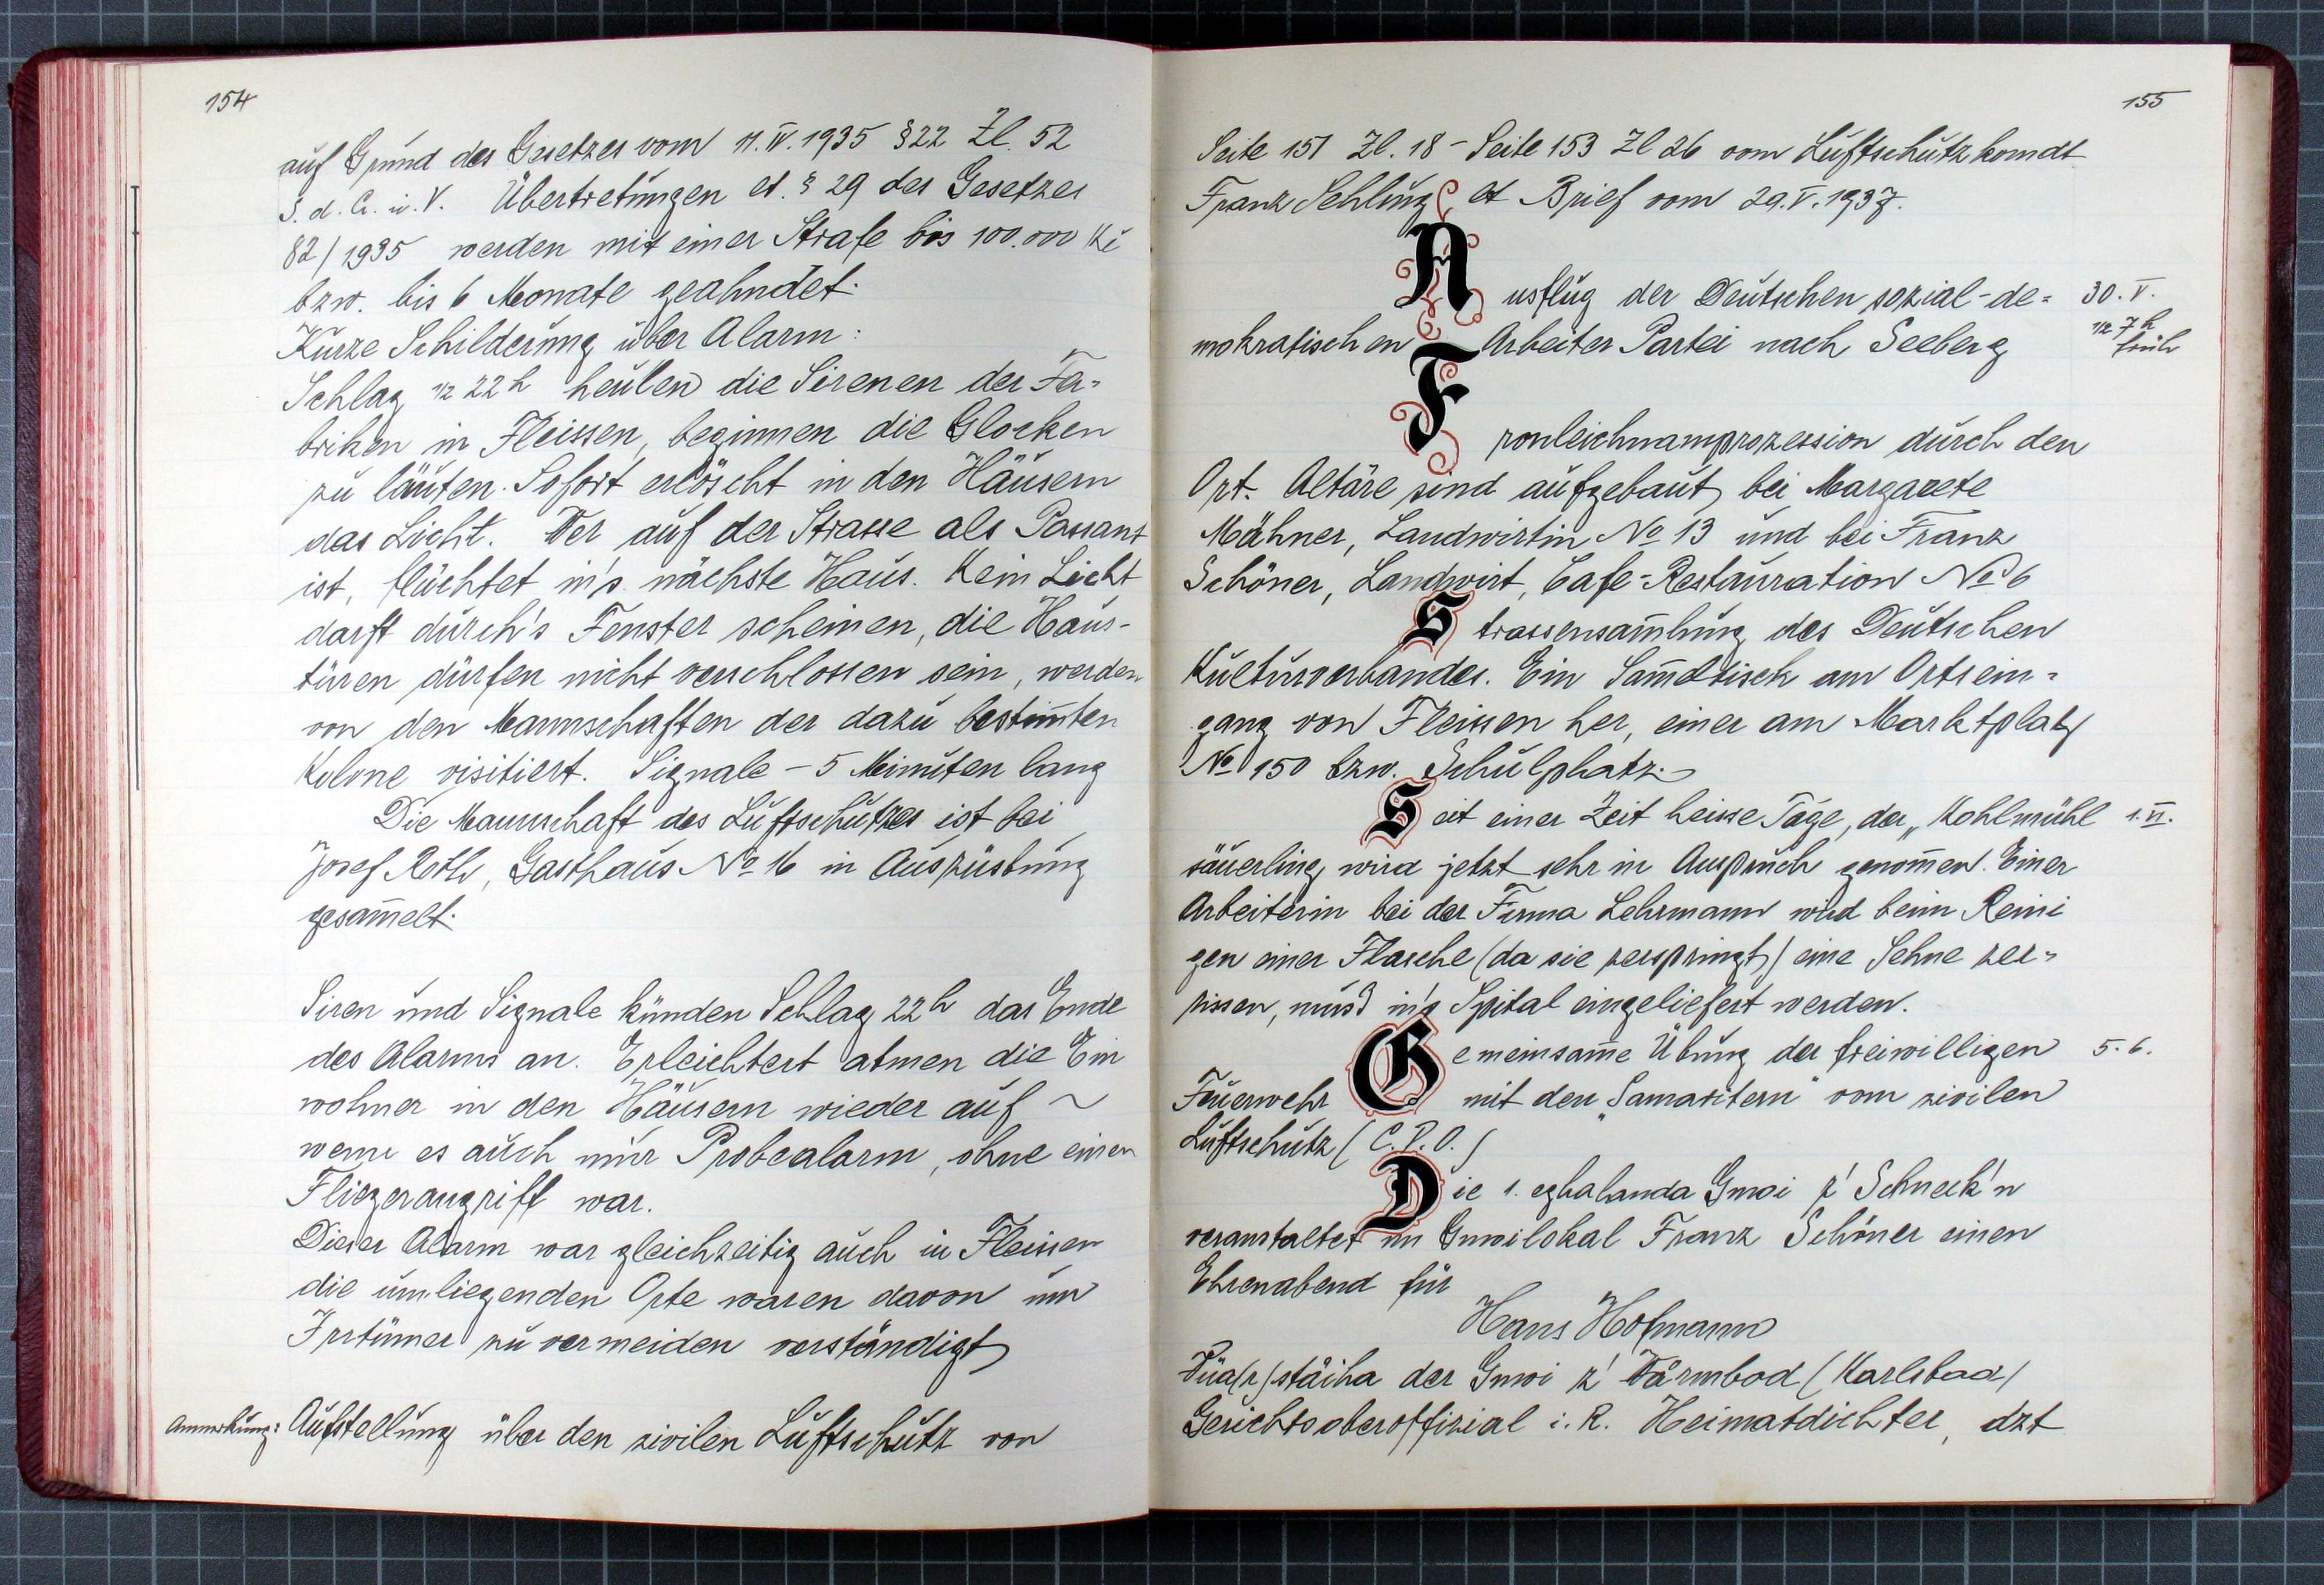 154
auf Grund des Gesetzes vom 11.IV.1935 §22 Zl. 52
S. d. G. u. V. Übertretungen lt. § 29 des Gesetzes
82/1935 werden mit einer Strafe bis 100.000 Kč
bzw. bis 6 Monate geahndet.
Kurze Schilderung über Alarm:
Schlag 1/2 22h heulen die Sirenen der Fa=
briken in Fleissen, beginnen die Glocken
zu läuten. Sofort erlöscht in den Häusern
das Licht. Wer auf der Strasse als Passant
ist, flüchtet in's nächste Haus. Kein Licht
darft durch's Fenster scheinen, die Haus-
türen dürfen nicht verschlossen sein, werden
von den Mannschaften der dazu bestim̄ten
Kolone visitiert. Signale – 5 Minuten lang
Die Mannschaft des Luftschutzes ist bei
Josef Roth, Gasthaus No 16 in Ausrüstung
gesam̄elt.
Siren und Signale künden Schlag 22h das Ende
des Alarms an. Erleichtert atmen die Ein
wohner in den Häusern wieder auf ~
wenn es auch nur Probealarm, ohne einen
Fliegerangriff war.
Dieser Alarm war gleichzeitig auch in Fleissen
die umliegenden Orte waren davon um
Irrtümer zu vermeiden verständigt
Anmerkung: Aufstellung über den zivilen Luftschutz von
155
Seite 151 Zl. 18 – Seite 153 Zl 26 vom Luftschutzkomdt
Franz Schling, lt Brief vom 29.V.1937.
Ausflug der Deutschen sozial-de= 30.V.
mokratischen Arbeiter Partei nach Seeberg 1/2 7h früh
Fronleichnamprozession durch den
Ort. Altäre sind aufgebaut bei Margarete
Mähner, Landwirtin No 13 und bei Franz
Schöner, Landwirt, Cafe=Restauration No 6
Strassensam̄lung des Deutschen
Kulturverbandes. Ein Sam̄eltisch am Ortsein=
gang von Fleissen her, einer am Marktplatz
No 150 bzw. Schulplatz.
Seit einer Zeit heisse Tage, der „Kohlmühl 1.VI.
säuerling wird jetzt sehr in Anspruch genom̄en. Einer
Arbeiterin bei der Firma Lehrmann wird beim Reini
gen einer Flasche (da sie zerspringt) eine Sehne zer=
rissen, muss in's Spital eingeliefert werden.
Gemeinsam̄e Übung der freiwilligen 5.6.
Feuerwehr mit den „Samaritern" vom zivilen
Luftschutz (C.P.O.)
Die 1. eghalanda Gmoi z' Schneck'n
veranstaltet im Gmoilokal Franz Schöner einen
Ehrenabend für
Hans Hofmann
Vüa(r)stäiha der Gmoi z' Wårmbod (Karlsbad)
Gerichtsoberoffizial i. R. Heimatdichter, dzt